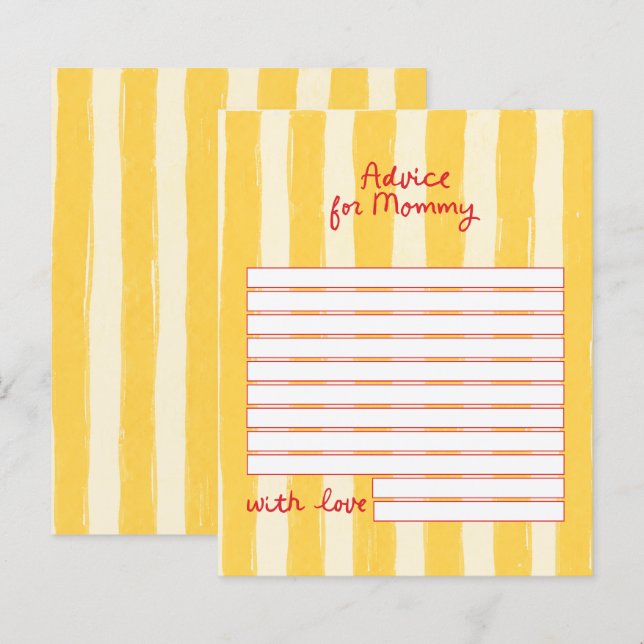 Advice
for Mommy
with love